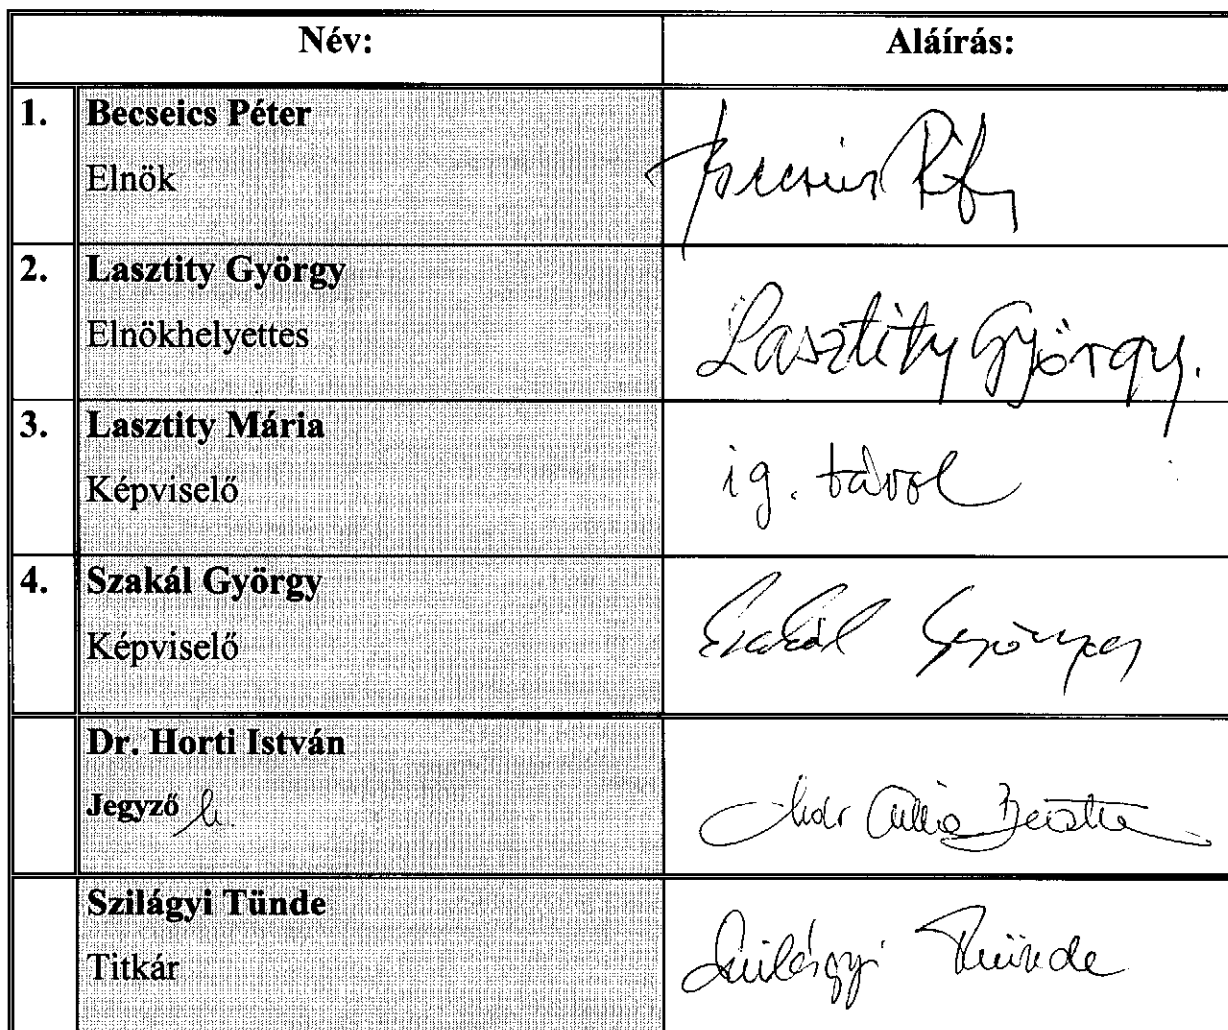 Név: Aláírás:
1. Becseics Péter
Elnök
Becseics Péter
2. Lasztity György
Elnökhelyettes
Lasztity György.
3. Lasztity Mária
Képviselő
ig. távol
4. Szakál György
Képviselő
Szakál György
Dr. Horti István
Jegyző h.
Szilágyi Tünde
Titkár
Szilágyi Tünde